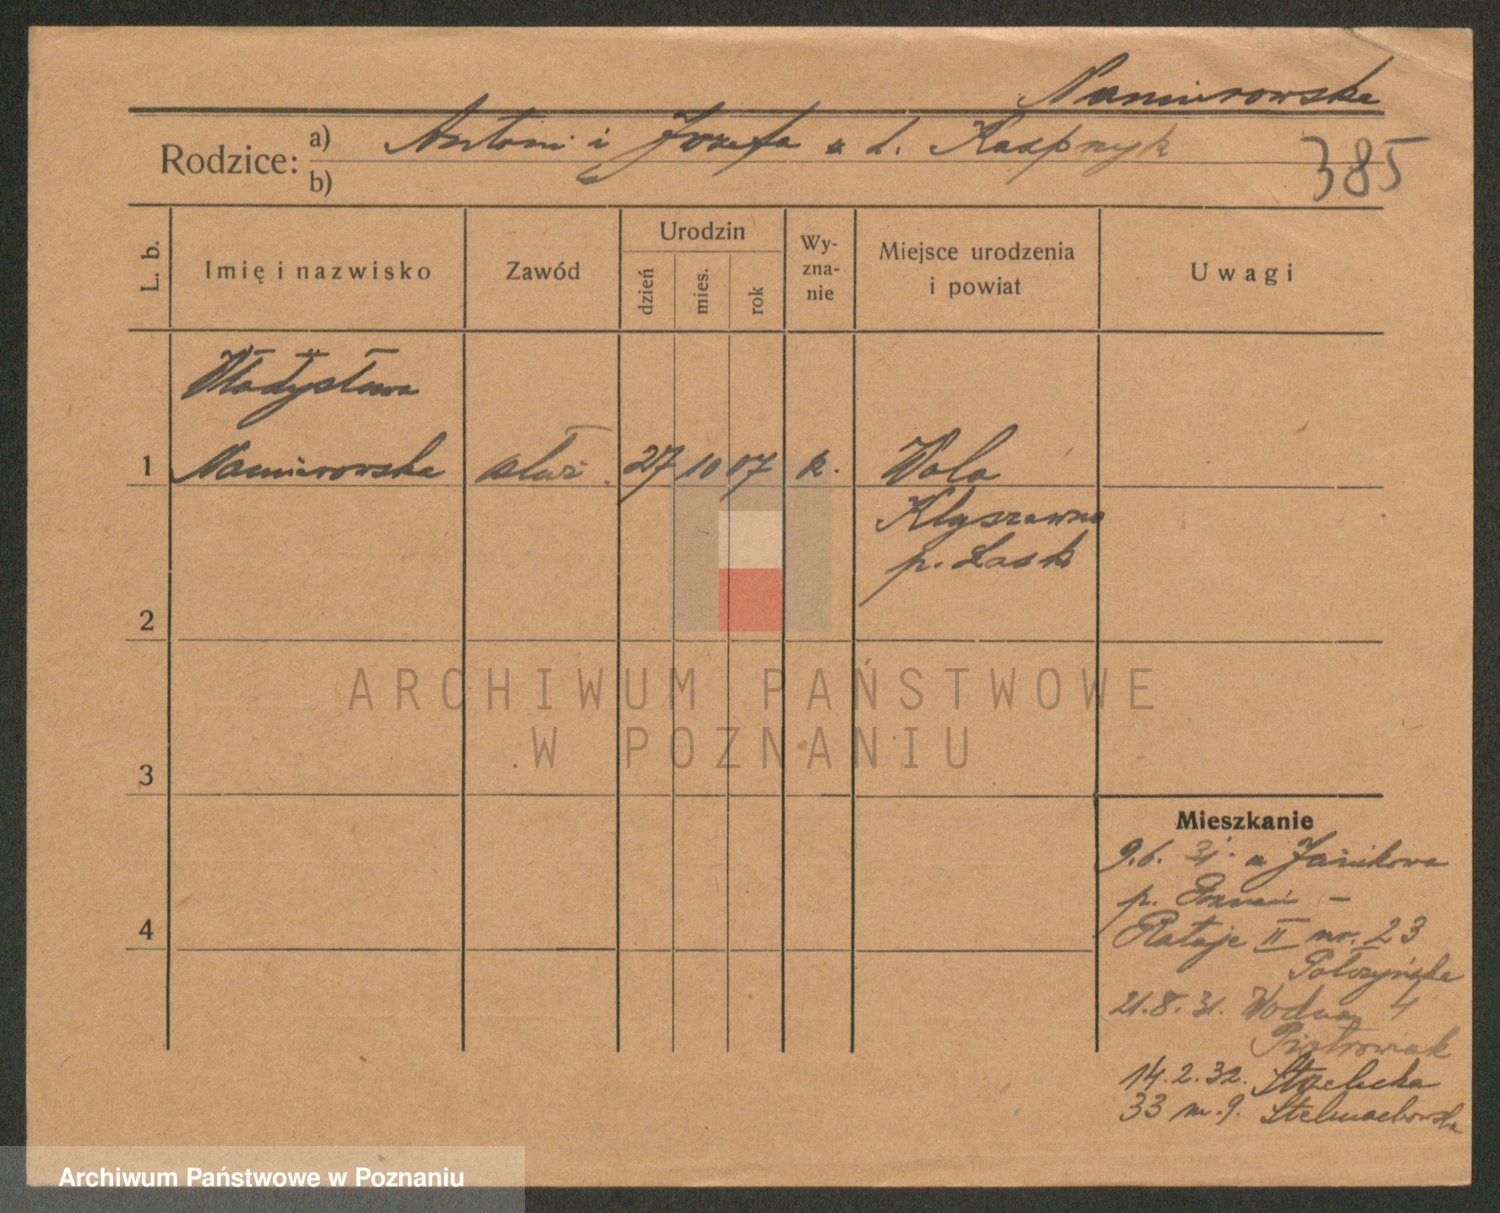 Namirowska
Rodzice: a) Antoni i Józefa z d. Kasprzyk
b)
385
L. b.
Imię i nazwisko
Zawód
Urodzin
dzień
mies.
rok
Wy-
zna-
nie
Miejsce urodzenia
i powiat
Uwagi
Władysława
1 Namirowska służ. 27 10 07 k. Wola
p. Łask
2
ARCHIWUM PAŃSTWOWE
W POZNANIU
3
Mieszkanie
9.6. 31. z Janikowa
p. Poznań –
4
Rataje II nr. 23
21.8.31. Wodna 4
Piotrowiak
14.2.32. Strzelecka
33 m. 9. Stelmachowska
Archiwum Państwowe w Poznaniu